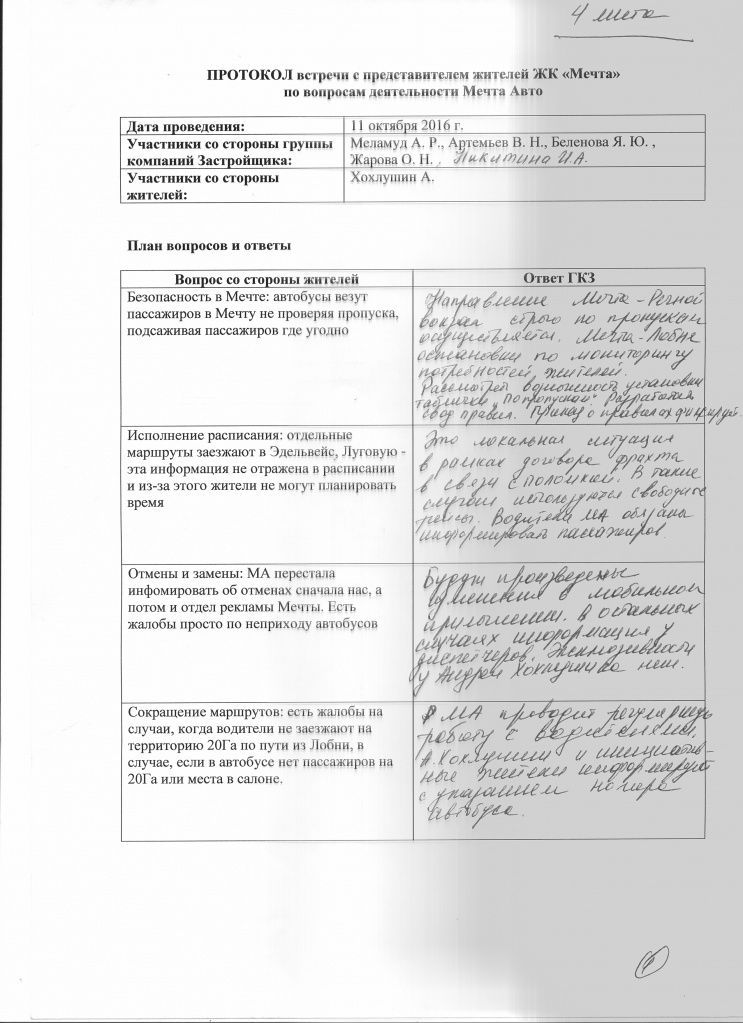 4 листа
ПРОТОКОЛ встречи с представителем жителей ЖК «Мечта»
по вопросам деятельности Мечта Авто
Дата проведения:
11 октября 2016 г.
Участники со стороны группы
компаний Застройщика:
Меламуд А. Р., Артемьев В. Н., Беленова Я. Ю. ,
Жарова О. Н. , Никитина И.А.
Участники со стороны
жителей:
Хохлушин А.
План вопросов и ответы
Вопрос со стороны жителей
Ответ ГКЗ
Безопасность в Мечте: автобусы везут
пассажиров в Мечту не проверяя пропуска,
подсаживая пассажиров где угодно
Направление Мечта-Речной
вокзал строго по пропускам
осуществляется. Мечта-Лобня
остановки по мониторингу
потребностей жителей.
Рассмотреть возможность установки
таблички "По пропускам". Разработать
свод правил. Приказ о правилах
Исполнение расписания: отдельные
маршруты заезжают в Эдельвейс, Луговую -
эта информация не отражена в расписании
и из-за этого жители не могут планировать
время
Это локальная ситуация
в рамках договора фрахта
в связи с поломкой. В такие
случаи используются свободные
рейсы. Водители МА обязаны
информировать пассажиров.
Отмены и замены: МА перестала
инфомировать об отменах сначала нас, а
потом и отдел рекламы Мечты. Есть
жалобы просто по неприходу автобусов
Будут произведены
изменения в мобильном
приложении. В остальных
случаях информация у
диспетчеров. Эксклюзивности
у Андрея Хохлушина нет.
Сокращение маршрутов: есть жалобы на
случаи, когда водители не заезжают на
территорию 20Га по пути из Лобни, в
случае, если в автобусе нет пассажиров на
20Га или места в салоне.
МА проводит регулярную
работу с водителями.
А.Хохлушин и инициатив-
ные жители информируют
с указанием номера
автобуса.